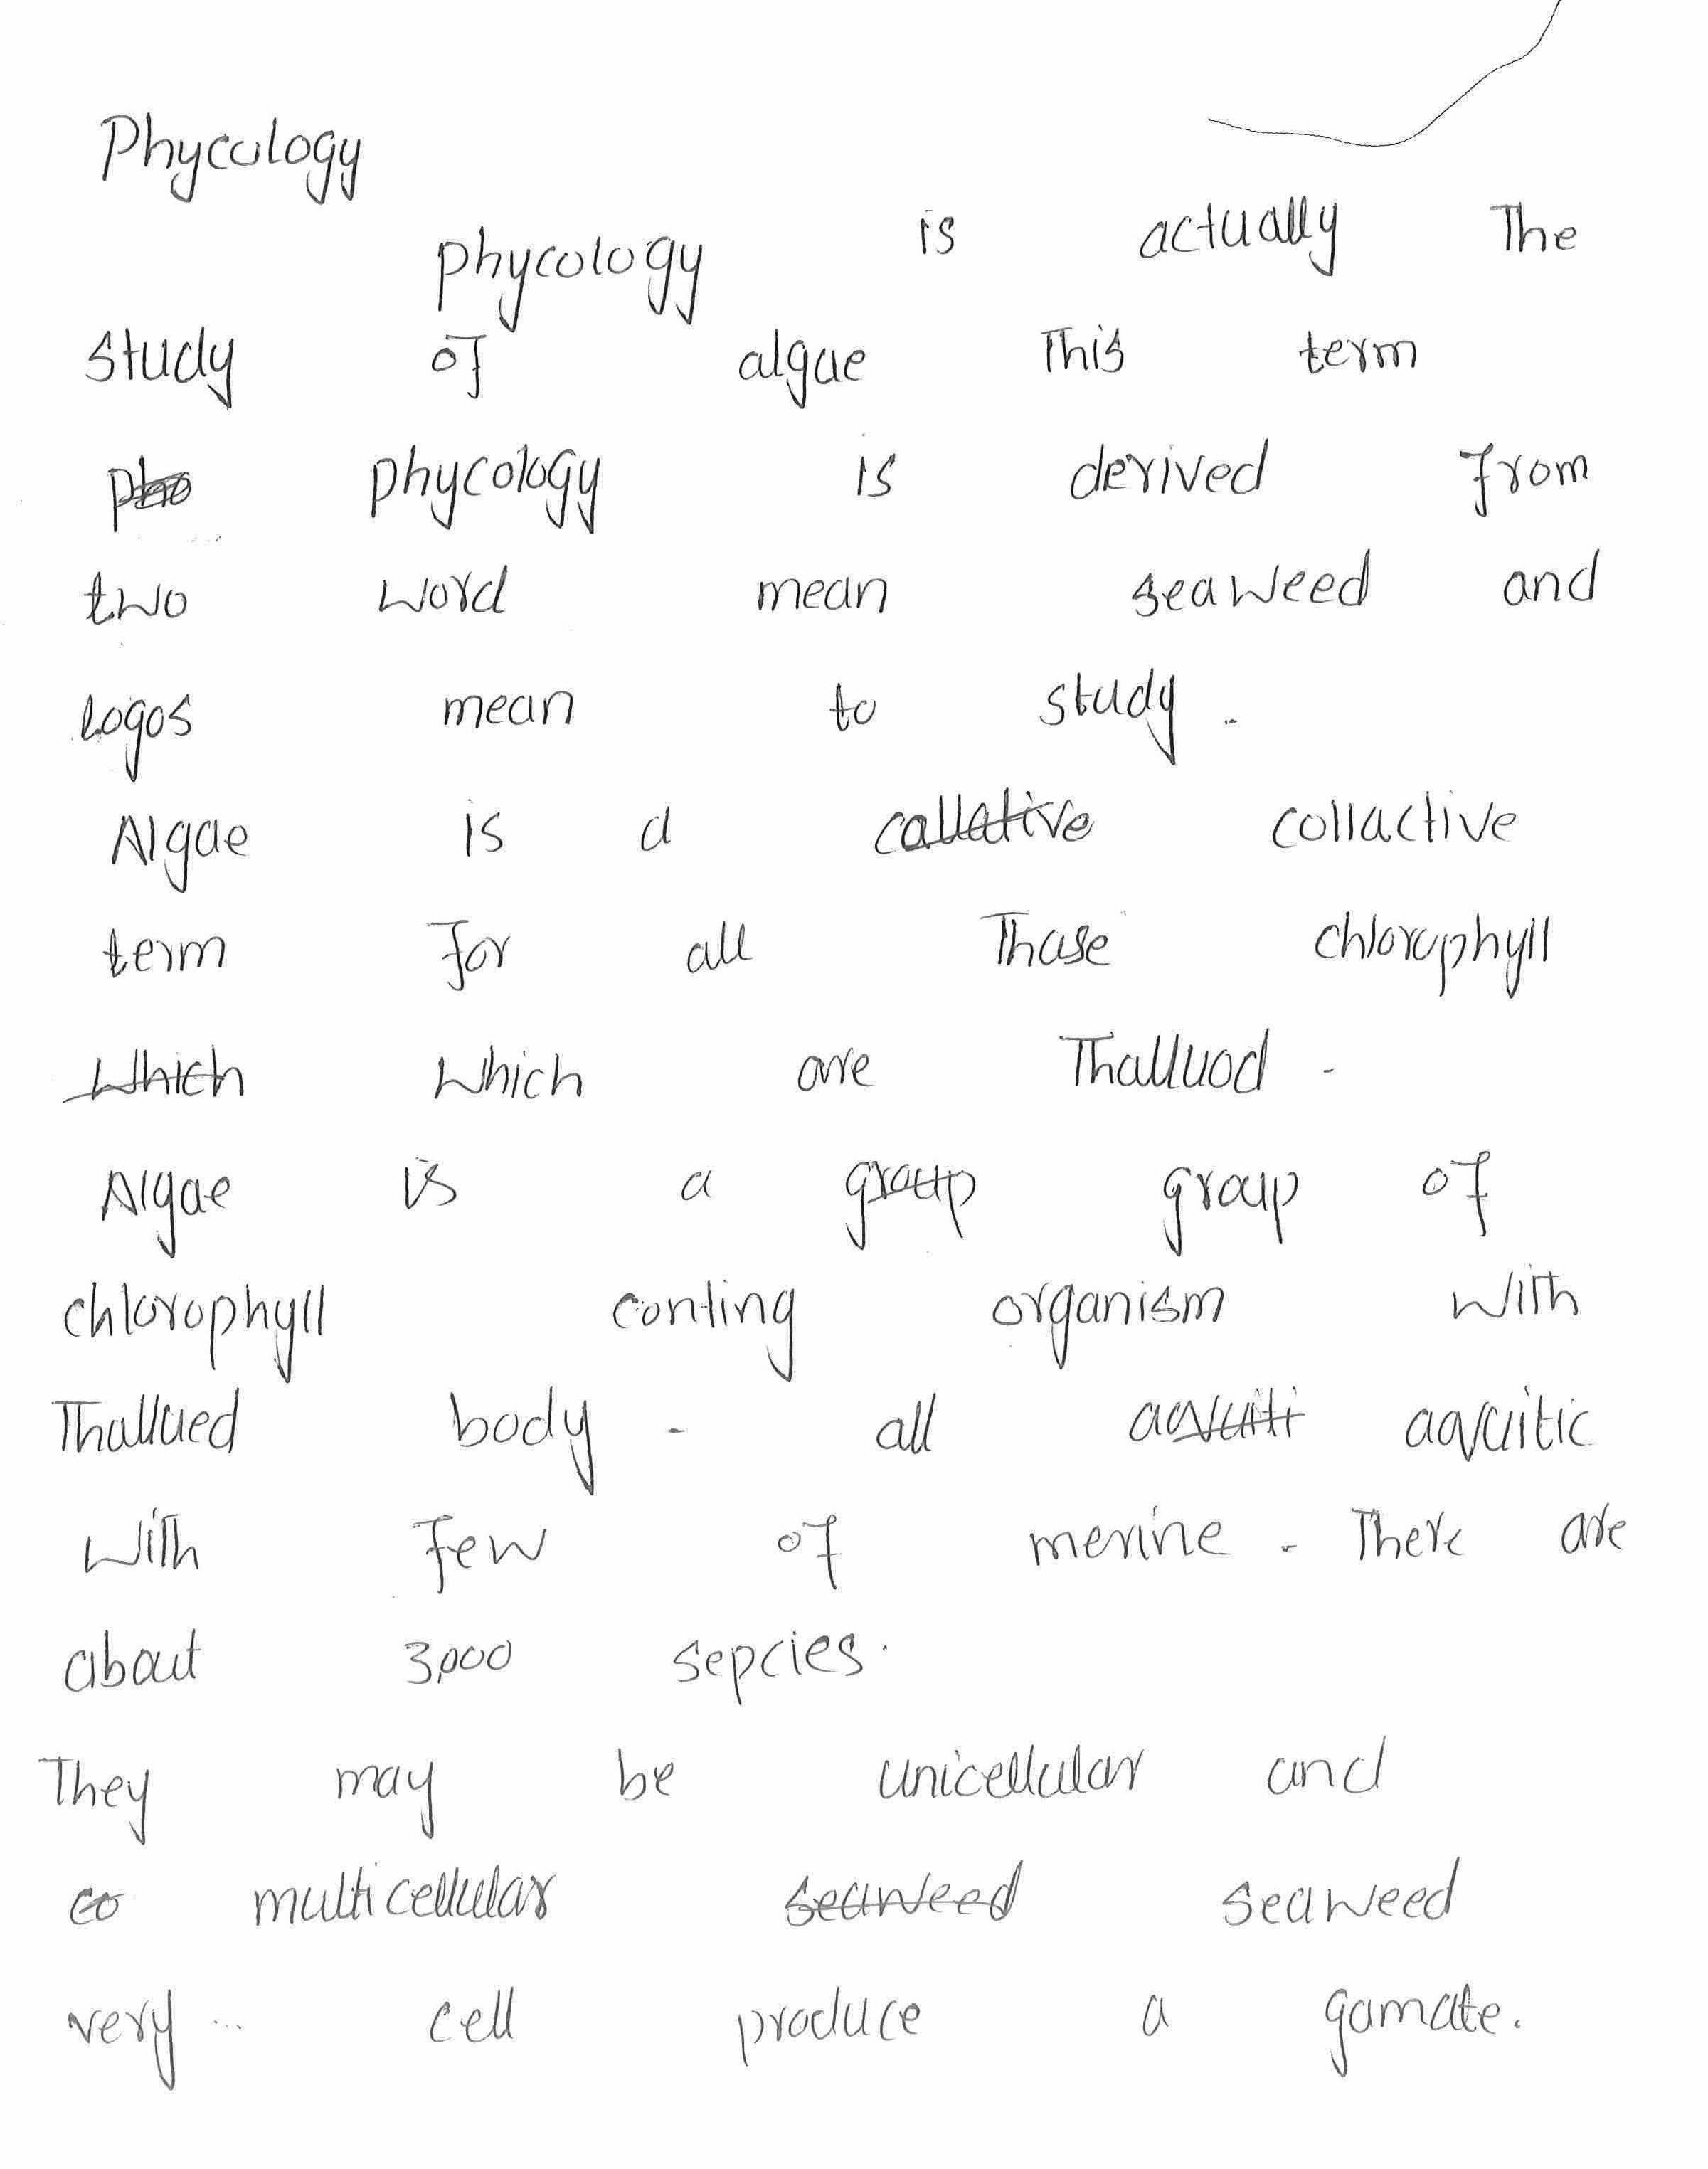 Phycology
phycology is actually The
study of algae This term
pho phycology is derived from
two word mean seaweed and
logos mean to study.
Algae is a callative collactive
term for all Those chlorophyll
which which are Thalluod.
Algae is a group group of
chlorophyll conting organism with
Thallued body. all aqvuiti aqvuitic
with few of merine. There are
about 3,000 sepcies.
They may be unicellular and
co multicellular seaweed seaweed
very cell produce a gamate.